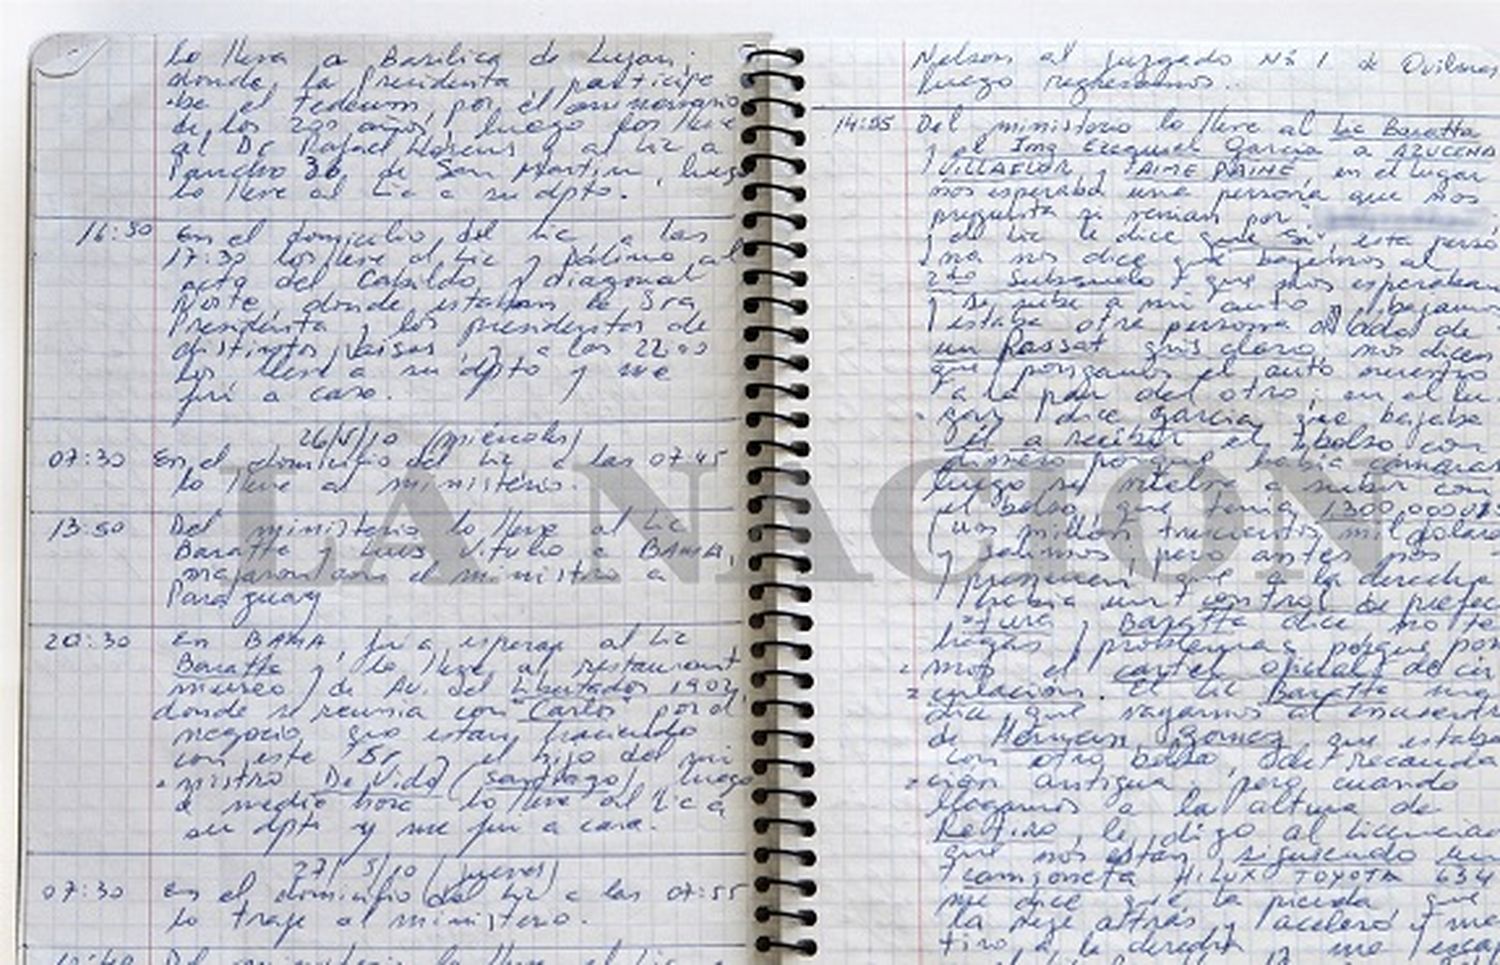 lo lleva a Basilica de Lujan,
donde la Presidenta participe
de el tedeum, por el aniversario
de los 200 años, luego los lleve
al Dr Rafael Llorens y al Lic a
Pancho 36, de San Martin, luego
lo lleve al Lic a su dpto.
16:30 En el domicilio del Lic a las
17:30 los lleve al Lic y Palino al
acto del Cabildo y diagonal
Norte, donde estaban la Sra
Presidenta y los presidentes de
distintos paises y a las 22:00
los lleve a su dpto y me
fui a casa.
26/5/10 (miércoles)
07:30 En el domicilio del Lic a las 07:45
lo lleve al ministerio.
13:50 Del ministerio lo lleve al Lic
Baratta y Luis Vitullo a BAMA,
viajaron con el ministro a
Paraguay
20:30 En BAMA, fui a esperar al Lic
Baratta y lo lleve al restaurant
museo de Av. del Libertador 1902,
donde se reunia con "Carlos" por el
negocio que estan haciendo
con este "Sr" y el hijo del mi
nistro De Vido (Santiago) luego
de media hora lo lleve al Lic a
su dpto y me fui a casa.
27/5/10 (jueves)
07:30 En el domicilio del Lic a las 07:55
lo traje al ministerio.
Del ministerio lo lleve al Lic
Nelson al juzgado Nº 1 de Quilmes
luego regresamos.
14:55 Del ministerio lo lleve al Lic Baratta
y al Ing Ezequiel Garcia a AZUCENA
VILLAFLOR y JAIME PAINÉ, en el lugar
nos esperaba una persona que nos
pregunta si venian por
y el Lic le dice que "Si", esta perso
na nos dice que bajemos al
2do Subsuelo y que nos esperaban
y se sube a mi auto y bajamos
y estaba otra persona al lado de
un Passat gris claro, nos dicen
que pongamos el auto nuestro
a la par del otro, en el lu
gar dice Garcia que bajaba
él a recibir el bolso con
dinero porque habia camaras
luego se vuelve a subir con
el bolso que tenia 1.300.000
(un millon trescientos mil dolares
y salimos, pero antes nos
previenen que a la derecha
habia un control de prefec
tura y Baratta dice no te
hagas problemas porque pone
mos el cartel oficial de cir
culacion. El Lic Baratta me
dice que vayamos al encuentro
de Hernan Gomez que estaba
con otro bolso, de recauda
cion antigua, pero cuando
llegamos a la altura de
Retiro, le digo al Licenciado
que nos estan siguiendo un
camioneta HILUX TOYOTA 634
me dice que la pierda que
la deje atrás y aceleró y me
tiro a la derecha y me
LA NACION